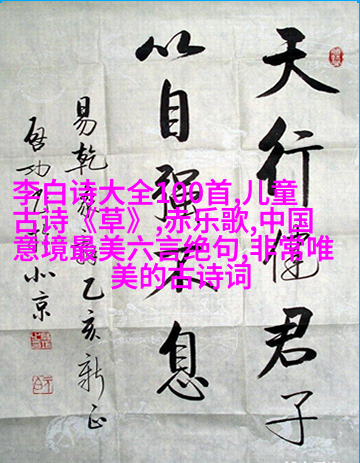 天行健君子
以自强不息
易乾乙亥新正
启功北京
李白诗大全100首,儿童
古诗《草》,赤乐歌,中国
意境最美六言绝句,非常唯
美的古诗词